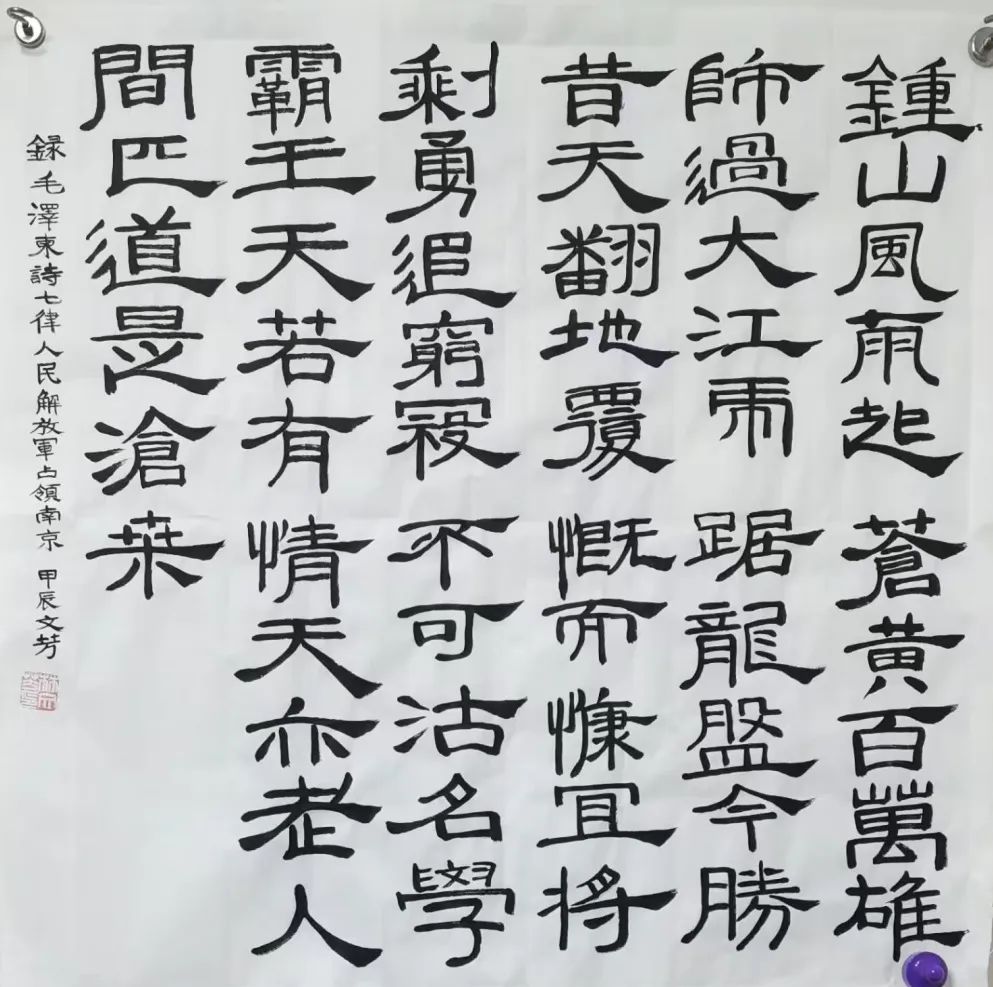 鍾山風雨起蒼黃百萬雄
師過大江虎踞龍盤今勝
昔天翻地覆慨而慷宜將
剩勇追窮寇不可沽名學
霸王天若有情天亦老人
間正道是滄桑
録毛澤東詩七律人民解放軍占領南京 甲辰文芳